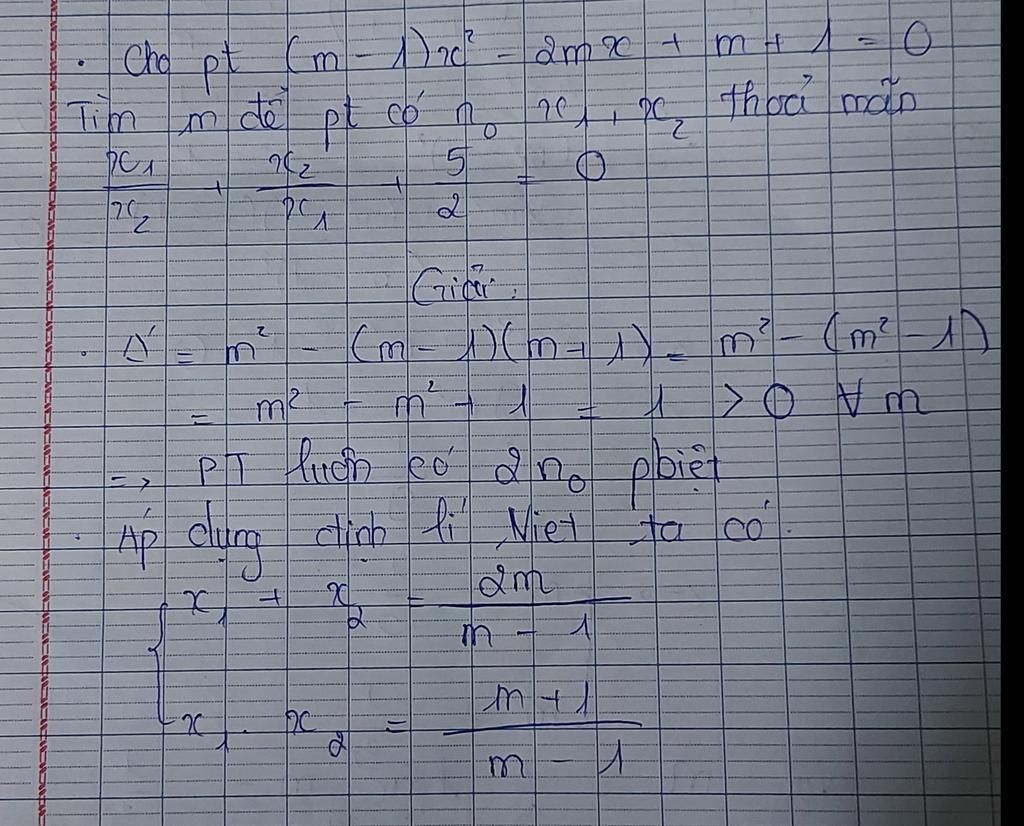 . Cho pt (m - 1)x² - 2mx + m + 1 = 0
Tìm m để pt có n₀ x₁, x₂ thoả mãn
x₁/x₂ + x₂/x₁ + 5/2 = 0
Giải:
. Δ' = m² - (m - 1)(m + 1) = m² - (m² - 1)
= m² - m² + 1 = 1 > 0 ∀ m
=> PT luôn có 2 n₀ pbiệt
. Áp dụng định lí Viet ta có:
{ x₁ + x₂ = 2m/(m - 1)
x₁ . x₂ = (m + 1)/(m - 1)